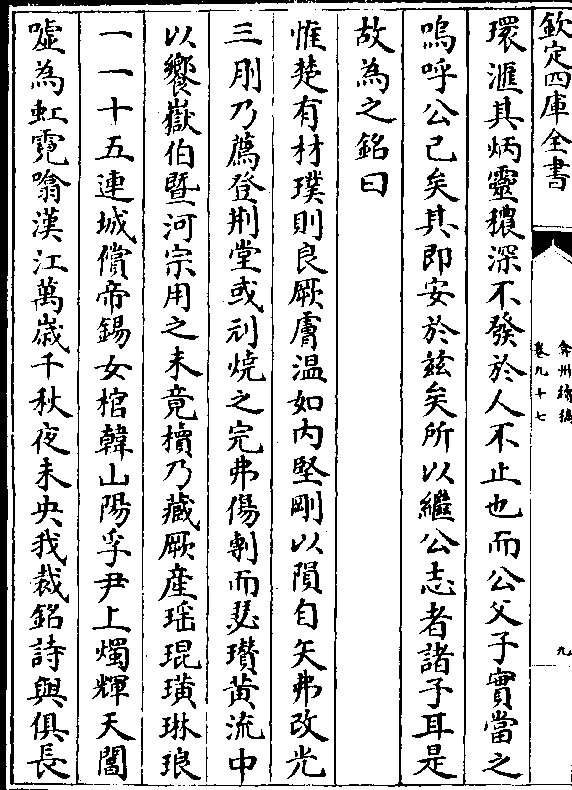 欽定四庫全書
弇州續稿
卷九十七
九
環滙其炳靈穠深不發於人不止也而公父子實當之
嗚呼公已矣其即安於兹矣所以繼公志者諸子耳是
故為之銘曰
惟楚有材璞則良厥膚溫如内堅剛以隕自矢弗改光
三刖乃薦登荆堂或刓燒之完弗傷剸而瑟瓚黄流中
以饗嶽伯暨河宗用之未竟櫝乃藏厥産瑶琨璜琳琅
一一十五連城償帝錫女棺韓山陽孚尹上燭輝天閶
嘘為虹霓噏漢江萬歳千秋夜未央我裁銘詩與俱長